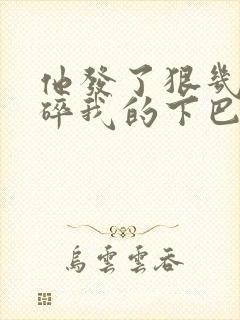 他發了狠幾
碎我的下巴
烏雲雲吞